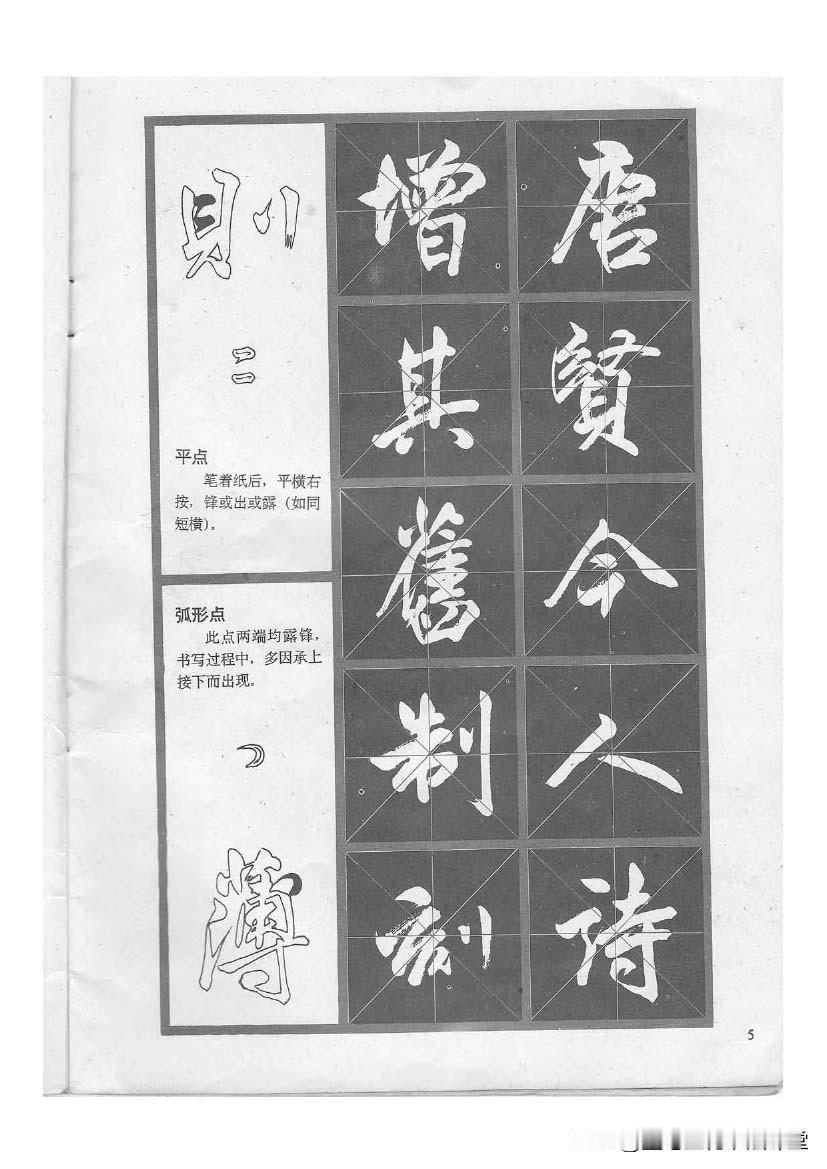 則
平点
笔着纸后，平横右
按，锋或出或露（如同
短横）。
弧形点
此点两端均露锋，
书写过程中，多因承上
接下而出现。
薄
增其舊制刻
唐賢今人诗
5